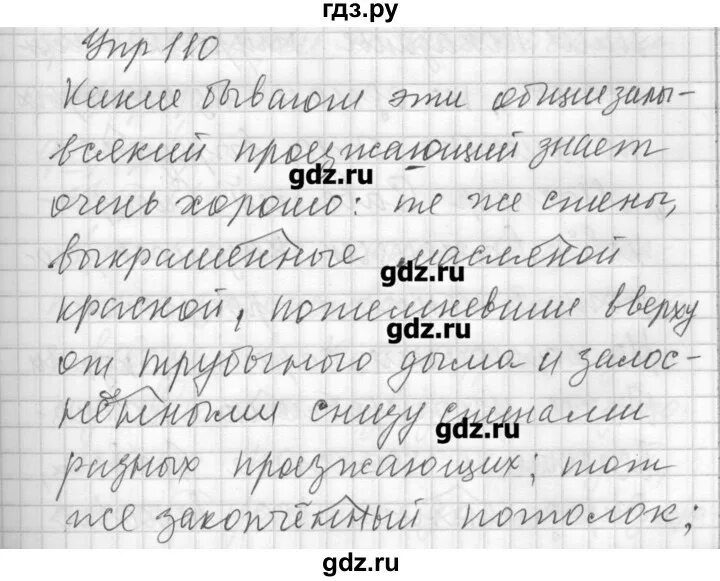 гдз.ру
Упр 110
Какие бывают эти общие залы-
всякий проезжающий знает
gdz.ru
очень хорошо: те же стены,
выкрашенные масляной
gdz.ru
краской, потемневшие вверху
gdz.ru
от трубочного дыма и залос-
нёнными снизу спинами
gdz.ru
разных проезжающих; тот
же закопчённый потолок;
gdz.ru